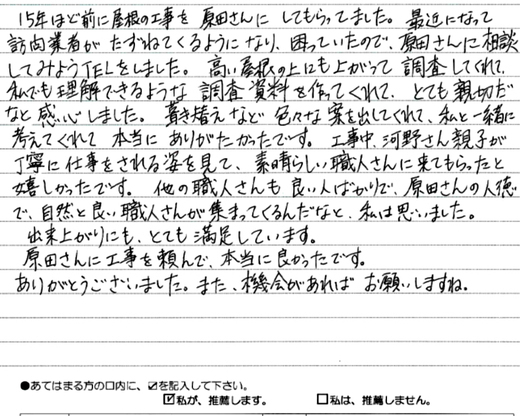 15年ほど前に屋根の工事を原田さんにしてもらってました。最近になって
訪問業者がたずねてくるようになり、困っていたので、原田さんに相談
してみようTELをしました。高い屋根の上にも上がって調査してくれて、
私でも理解できるような調査資料を作ってくれて、とても親切だ
なと感心しました。葺き替えなど色々な案を出してくれて、私と一緒に
考えてくれて本当にありがたかったです。工事中、河野さん親子が
丁寧に仕事をされる姿を見て、素晴らしい職人さんに来てもらったと
嬉しかったです。他の職人さんも良い人ばかりで、原田さんの人徳
で、自然と良い職人さんが集まってくるんだなと、私は思いました。
出来上がりにも、とても満足しています。
原田さんに工事を頼んで、本当に良かったです。
ありがとうございました。また、機会があればお願いしますね。
●あてはまる方の口内に、☑を記入して下さい。
☑私が、推薦します。 □私は、推薦しません。